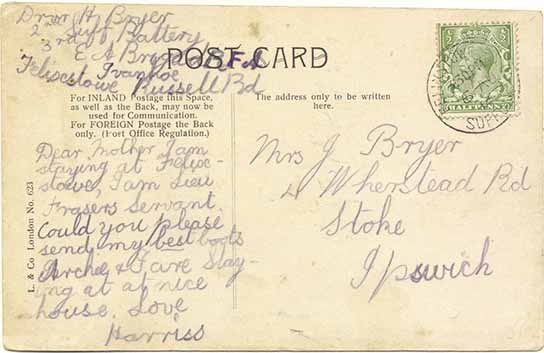 Drvr H. Bryer
2nd Suff Battery
3rd Battery
E A Brgd R.F.A
Ivanhoe
Felixstowe Russell Rd
POST CARD
For INLAND Postage this Space,
as well as the Back, may now be
used for Communication.
For FOREIGN Postage the Back
only. (Port Office Regulation.)
The address only to be written
here.
Dear Mother I am
staying at Felix-
stowe, I am Lieu
Frasers Servant.
Could you please
send my best boots
Archie & I are Stay-
ing at a nice
house. Love
Harriss
Mrs J Bryer
4 Wherstead Rd
Stoke
Ipswich
L. & Co London No. 623
HALFPENNY